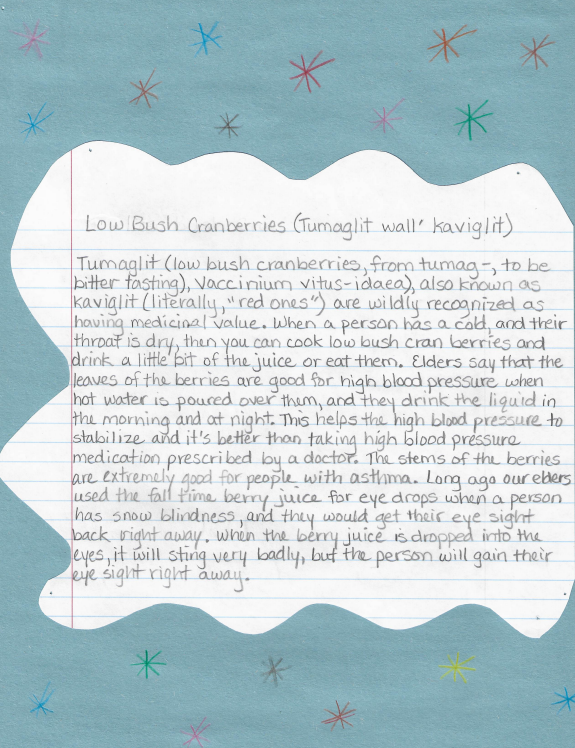 Low Bush Cranberries (Tumaglit wall' kaviglit)
Tumaglit (low bush cranberries, from tumag-, to be
bitter tasting), Vaccinium vitus-idaea), also known as
kaviglit (literally, "red ones") are wildly recognized as
having medicinal value. When a person has a cold, and their
throat is dry, then you can cook low bush cran berries and
drink a little bit of the juice or eat them. Elders say that the
leaves of the berries are good for high blood pressure when
hot water is poured over them, and they drink the liquid in
the morning and at night. This helps the high blood pressure to
stabilize and it's better than taking high blood pressure
medication prescribed by a doctor. The stems of the berries
are extremely good for people with asthma. Long ago our elders
used the fall time berry juice for eye drops when a person
has snow blindness, and they would get their eye sight
back right away. When the berry juice is dropped into the
eyes, it will sting very badly, but the person will gain their
eye sight right away.